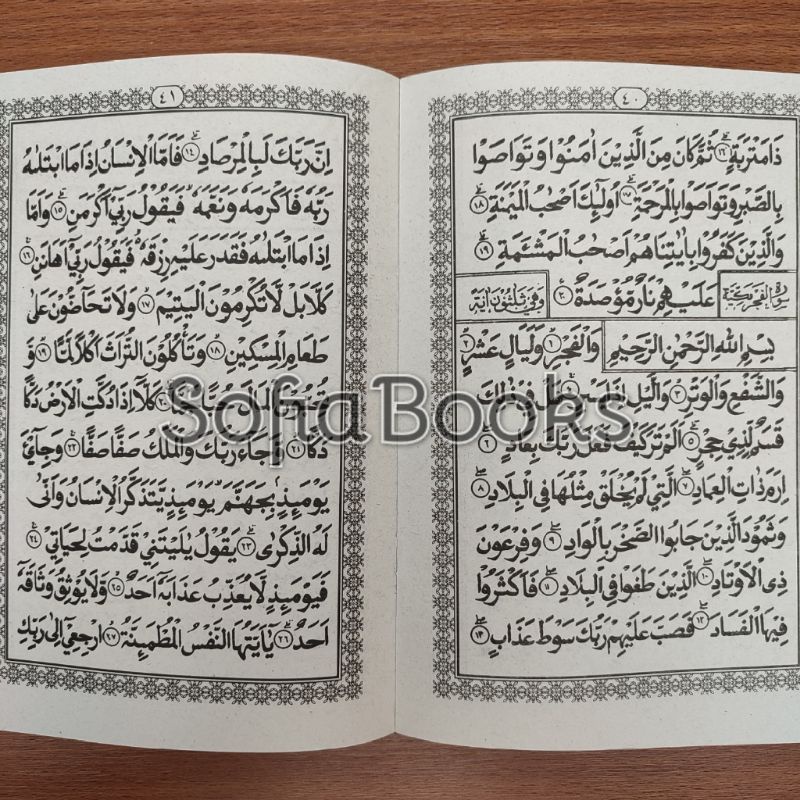 ٤٠
ذَا مَتْرَبَةٍ ١٦ ثُمَّ كَانَ مِنَ الَّذِيْنَ اٰمَنُوْا وَتَوَاصَوْا
بِالصَّبْرِ وَتَوَاصَوْا بِالْمَرْحَمَةِ ١٧ اُولٰۤئِكَ اَصْحٰبُ الْمَيْمَنَةِ ١٨
وَالَّذِيْنَ كَفَرُوْا بِاٰيٰتِنَا هُمْ اَصْحٰبُ الْمَشْـَٔمَةِ ١٩
عَلَيْهِمْ نَارٌ مُّؤْصَدَةٌ ٢٠ سورة الفجر مكية وهي ثلثون اية
بِسْمِ اللهِ الرَّحْمٰنِ الرَّحِيْمِ وَالْفَجْرِ ١ وَلَيَالٍ عَشْرٍ ٢
وَّالشَّفْعِ وَالْوَتْرِ ٣ وَالَّيْلِ اِذَا يَسْرِ ٤ هَلْ فِيْ ذٰلِكَ
قَسَمٌ لِّذِيْ حِجْرٍ ٥ اَلَمْ تَرَ كَيْفَ فَعَلَ رَبُّكَ بِعَادٍ ٦
اِرَمَ ذَاتِ الْعِمَادِ ٧ الَّتِيْ لَمْ يُخْلَقْ مِثْلُهَا فِى الْبِلَادِ ٨
وَثَمُوْدَ الَّذِيْنَ جَابُوا الصَّخْرَ بِالْوَادِ ٩ وَفِرْعَوْنَ
ذِى الْاَوْتَادِ ١٠ الَّذِيْنَ طَغَوْا فِى الْبِلَادِ ١١ فَاَكْثَرُوْا
فِيْهَا الْفَسَادَ ١٢ فَصَبَّ عَلَيْهِمْ رَبُّكَ سَوْطَ عَذَابٍ ١٣
٤١
اِنَّ رَبَّكَ لَبِالْمِرْصَادِ ١٤ فَاَمَّا الْاِنْسَانُ اِذَا مَا ابْتَلٰىهُ
رَبُّهٗ فَاَكْرَمَهٗ وَنَعَّمَهٗ فَيَقُوْلُ رَبِّيْۤ اَكْرَمَنِ ١٥ وَاَمَّاۤ
اِذَا مَا ابْتَلٰىهُ فَقَدَرَ عَلَيْهِ رِزْقَهٗ فَيَقُوْلُ رَبِّيْۤ اَهَانَنِ ١٦
كَلَّا بَلْ لَّا تُكْرِمُوْنَ الْيَتِيْمَ ١٧ وَلَا تَحٰۤضُّوْنَ عَلٰى
طَعَامِ الْمِسْكِيْنِ ١٨ وَتَأْكُلُوْنَ التُّرَاثَ اَكْلًا لَّمًّا ١٩ وَّ
تُحِبُّوْنَ الْمَالَ حُبًّا جَمًّا ٢٠ كَلَّاۤ اِذَا دُكَّتِ الْاَرْضُ دَكًّا
دَكًّا ٢١ وَّجَاۤءَ رَبُّكَ وَالْمَلَكُ صَفًّا صَفًّا ٢٢ وَجِايْۤءَ
يَوْمَئِذٍۢ بِجَهَنَّمَ يَوْمَئِذٍ يَّتَذَكَّرُ الْاِنْسَانُ وَاَنّٰى
لَهُ الذِّكْرٰى ٢٣ يَقُوْلُ يٰلَيْتَنِيْ قَدَّمْتُ لِحَيَاتِيْ ٢٤
فَيَوْمَئِذٍ لَّا يُعَذِّبُ عَذَابَهٗۤ اَحَدٌ ٢٥ وَّلَا يُوْثِقُ وَثَاقَهٗۤ
اَحَدٌ ٢٦ يٰۤاَيَّتُهَا النَّفْسُ الْمُطْمَئِنَّةُ ٢٧ ارْجِعِيْۤ اِلٰى رَبِّكِ
SofiaBooks